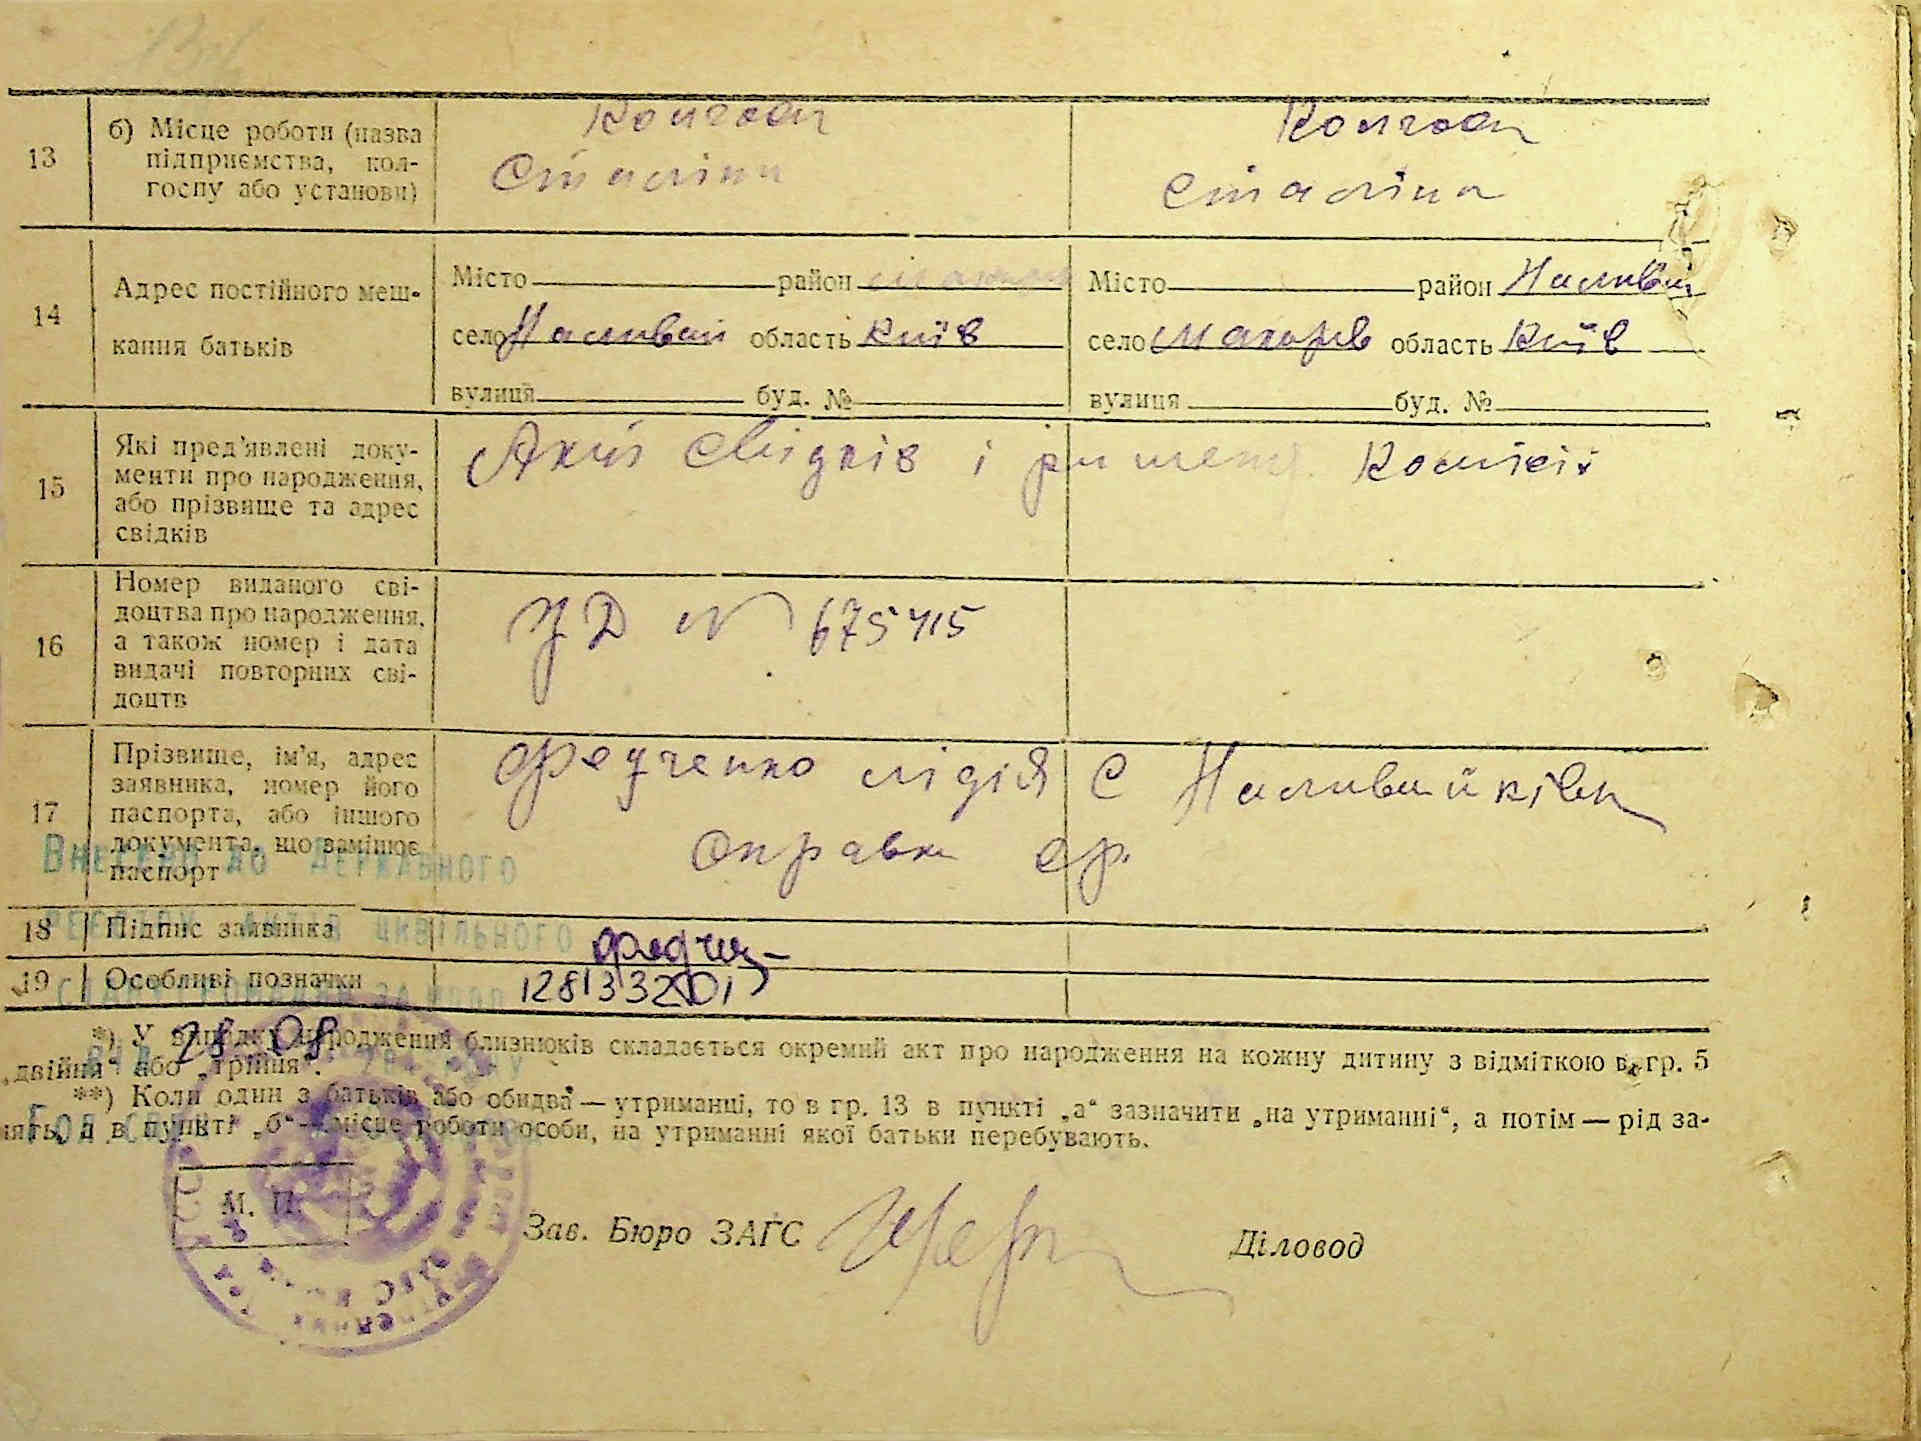 13
б) Місце роботи (назва
підприємства, кол-
госпу або установи)
Колгосп
Сталіна
Колгосп
Сталіна
14
Адрес постійного меш-
кання батьків
Місто район
село Наливай область Київ
вулиця буд. №
Місто район Наливай
село Макарів область Київ
вулиця буд. №
15
Які пред'явлені доку-
менти про народження,
або прізвище та адрес
свідків
Акт свідків і рішення Комісії
16
Номер виданого сві-
доцтва про народження,
а також номер і дата
видачі повторних сві-
доцтв
УД № 675415
17
Прізвище, ім'я, адрес
заявника, номер його
паспорта, або іншого
документа, що замінює
паспорт
Федченко Лідія С Наливайківк
справка ср.
Внесено до Державного
реєстру актів цивільного
18
Підпис заявника
Федчен
19
Особливі позначки
128133201
28 08
*) У випадку народження близнюків складається окремий акт про народження на кожну дитину з відміткою в гр. 5
„двійня“ або „трійня“.
**) Коли один з батьків або обидва — утриманці, то в гр. 13 в пункті „а“ зазначити „на утриманні“, а потім — рід за-
нять, а в пункті „б“ — місце роботи особи, на утриманні якої батьки перебувають.
М. П.
Зав. Бюро ЗАГС
Діловод